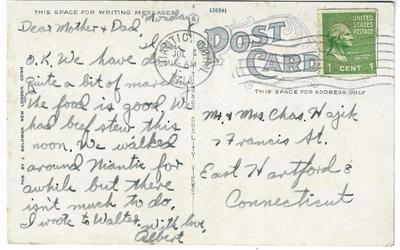 THIS SPACE FOR WRITING MESSAGES
Monday
Dear Mother & Dad,
O.K. We have done
quite a bit of marching
The food is good. We
had beef stew this
noon. We walked
around Niantic for
awhile but there
isn't much to do.
I wrote to Walter.
With love,
Albert
PUB. BY J. SOLOMON, NEW LONDON, CONN.
126541
POST
CARD
NIANTIC CONN
JUL
UNITED
STATES
POSTAGE
1 CENT 1
THIS SPACE FOR ADDRESS ONLY
Mr. & Mrs. Chas. Hajek
7 Francis St.
East Hartford 8
Connecticut